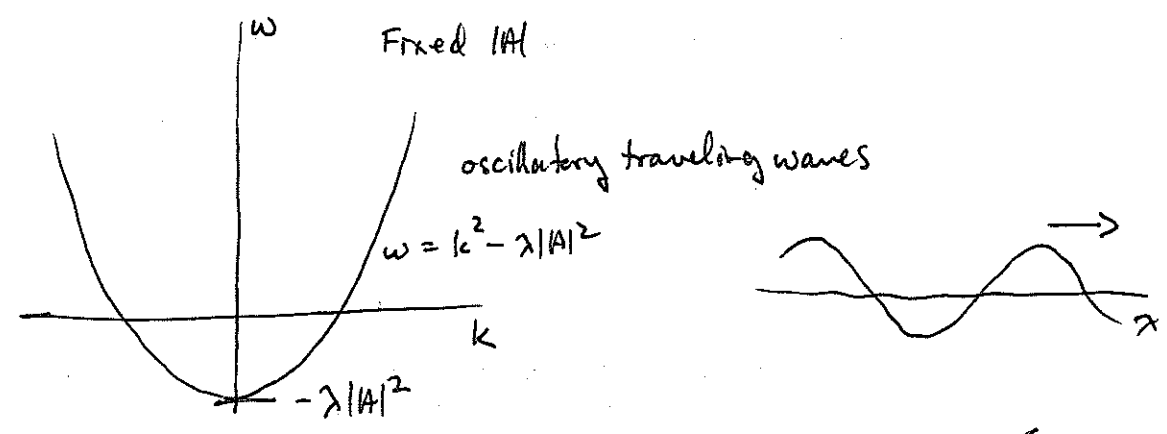 ω
Fixed |A|
oscillatory traveling waves
ω = k² - λ|A|²
k
x
- λ|A|²